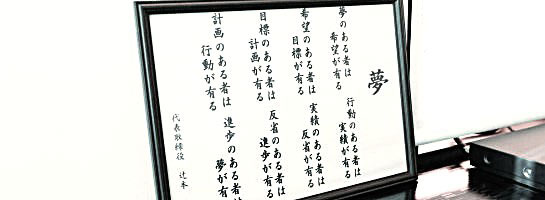 夢
夢のある者は
希望が有る
希望のある者は
目標が有る
目標のある者は
計画が有る
計画のある者は
行動が有る
行動のある者は
実績が有る
実績のある者は
反省が有る
反省のある者は
進歩が有る
進歩のある者は
夢が有る
代表取締役